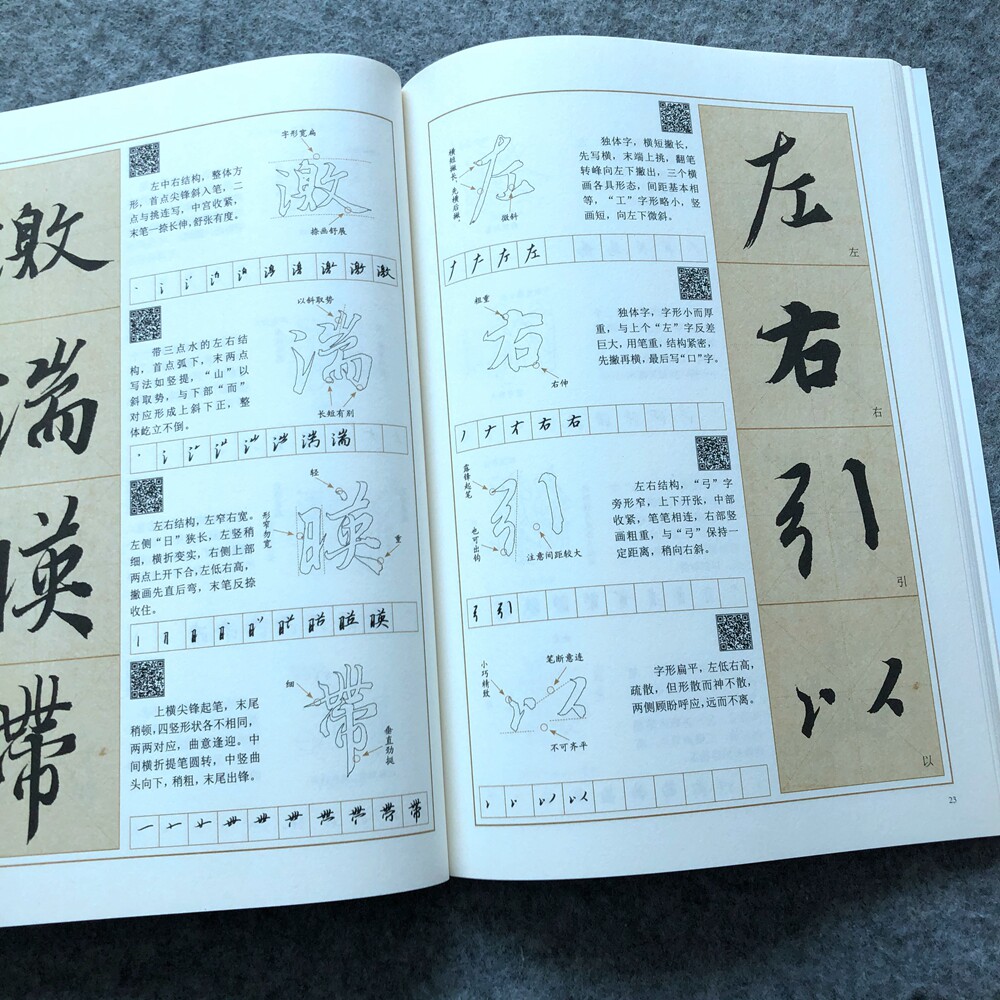 激
字形宽扁
左中右结构，整体方
形，首点尖锋斜入笔，二
点与挑连写，中宫收紧，
末笔一捺长伸，舒张有度。
激
捺画舒展
激
湍
以斜取势
带三点水的左右结
构，首点弧下，末两点
写法如竖提，“山”以
斜取势，与下部“而”
对应形成上斜下正，整
体屹立不倒。
湍
长短有别
湍
映
轻
形窄勿宽
左右结构，左窄右宽。
左侧“日”狭长，左竖稍
细，横折变实，右侧上部
两点上开下合，左低右高，
撇画先直后弯，末笔反捺
收住。
暎
重
暎
帶
细
上横尖锋起笔，末尾
稍顿，四竖形状各不相同，
两两对应，曲意逢迎。中
间横折提笔圆转，中竖曲
头向下，稍粗，末尾出锋。
帶
垂直劲挺
帶
横短撇长，先横后撇。
左
微斜
独体字，横短撇长，
先写横，末端上挑，翻笔
转峰向左下撇出，三个横
画各具形态，间距基本相
等，“工”字形略小，竖
画短，向左下微斜。
左
左
左
粗重
右
右伸
独体字，字形小而厚
重，与上个“左”字反差
巨大，用笔重，结构紧密，
先撇再横，最后写“口”字。
右 右
右
右
露锋起笔
引
也可出钩
注意间距较大
左右结构，“弓”字
旁形窄，上下开张，中部
收紧，笔笔相连，右部竖
画粗重，与“弓”保持一
定距离，稍向右斜。
引
引
引
小巧精致
笔断意连
以
不可齐平
字形扁平，左低右高，
疏散，但形散而神不散，
两侧顾盼呼应，远而不离。
以
以
以
23